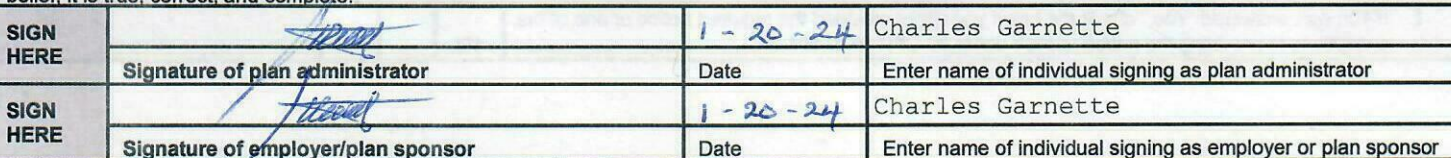 belief, it is true, correct, and complete.
SIGN HERE 1 - 20 - 24 Charles Garnette
Signature of plan administrator Date Enter name of individual signing as plan administrator
SIGN HERE 1 - 20 - 24 Charles Garnette
Signature of employer/plan sponsor Date Enter name of individual signing as employer or plan sponsor